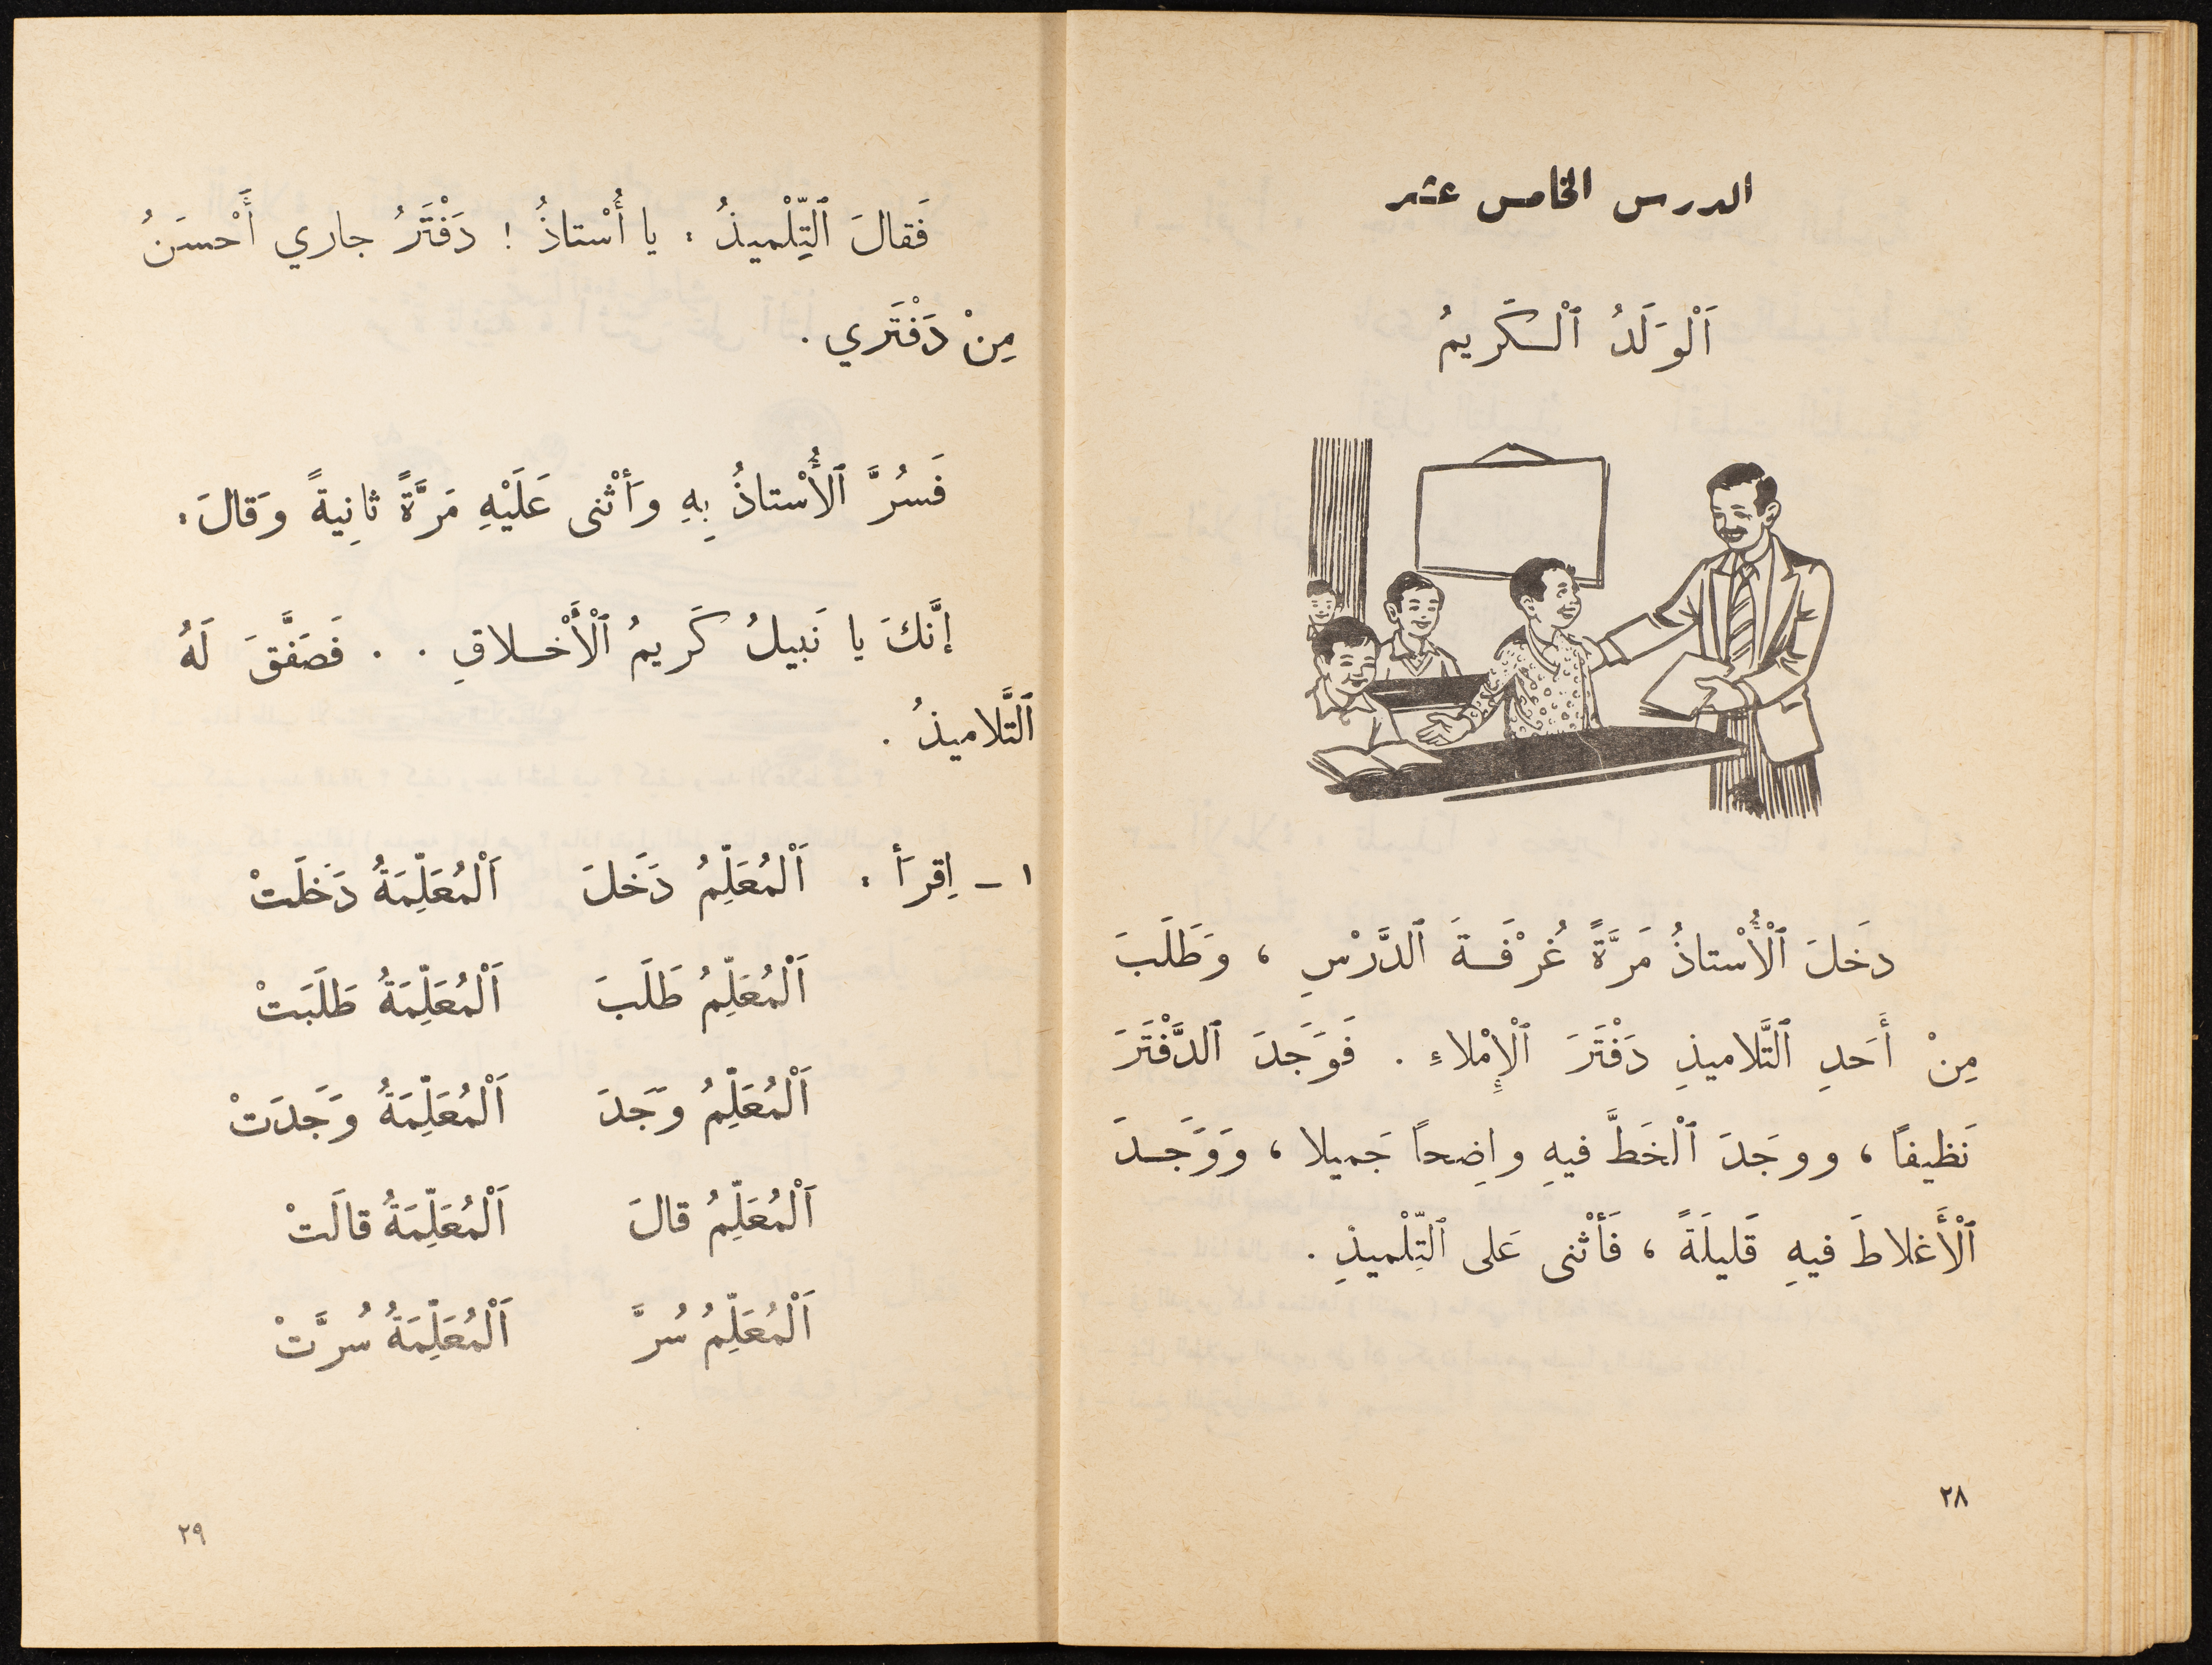 الدرس الخامس عشر
اَلْوَلَدُ ٱلْكَريمُ
دخَلَ ٱلْأُسْتاذُ مَرَّةً غُرْفَةَ ٱلدَّرْسِ ، وَطَلَبَ
مِنْ أَحَدِ ٱلتَّلاميذِ دَفْتَرَ ٱلْإِمْلاءِ . فَوَجَدَ ٱلدَّفْتَرَ
نَظيفاً ، ووجَدَ ٱلْخَطَّ فيهِ واضِحاً جَميلا ، وَوَجَدَ
ٱلْأَغلاطَ فيهِ قَليلَةً ، فَأثْنى عَلى ٱلتِّلْميذِ .
٢٨
فَقالَ ٱلتِّلْميذُ : يا أُسْتاذُ ! دَفْتَرُ جاري أَحْسَنُ
مِنْ دَفْتَري .
فَسُرَّ ٱلأُسْتاذُ بِهِ وَأثْنى عَلَيْهِ مَرَّةً ثانِيةً وَقالَ :
إنَّكَ يا نَبيلُ كَريمُ ٱلْأَخْلاقِ . . فَصَفَّقَ لَهُ
ٱلتَّلاميذُ .
١ – اِقرَأ : اَلْمُعَلِّمُ دَخَلَ اَلْمُعَلِّمَةُ دَخلَتْ
اَلْمُعَلِّمُ طَلَبَ اَلْمُعَلِّمَةُ طَلَبَتْ
اَلْمُعَلِّمُ وَجَدَ اَلْمُعَلِّمَةُ وَجَدَتْ
اَلْمُعَلِّمُ قالَ اَلْمُعَلِّمَةُ قالَتْ
اَلْمُعَلِّمُ سُرَّ اَلْمُعَلِّمَةُ سُرَّتْ
٢٩